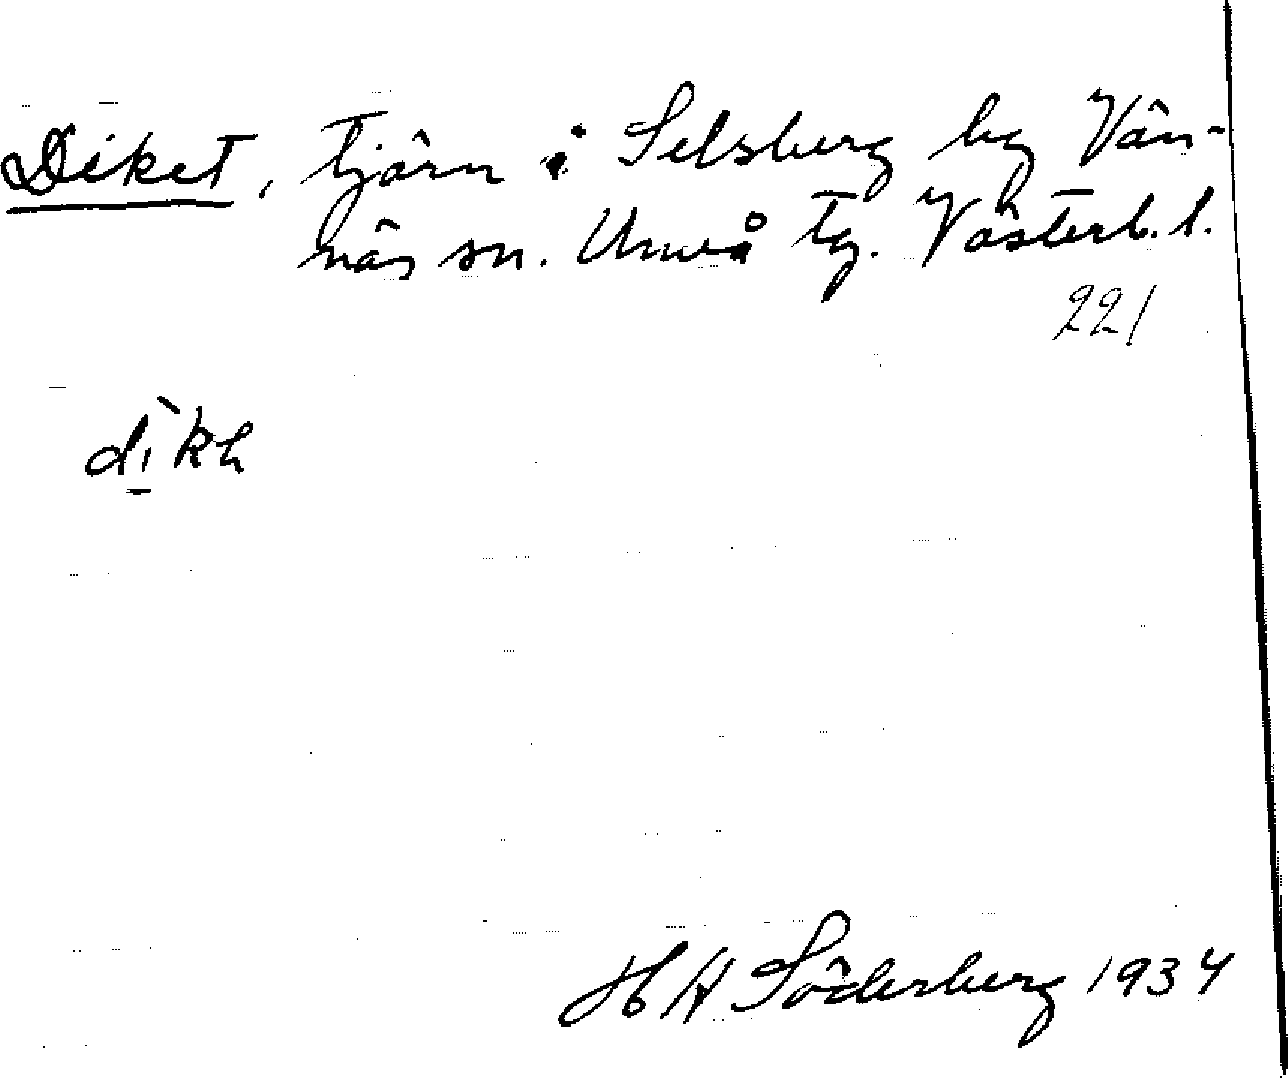 Diket, tjärn i Selsberg by Vän-
näs sn. Umeå tg. Västerb. l.
221
dìkh
H H Söderberg 1934